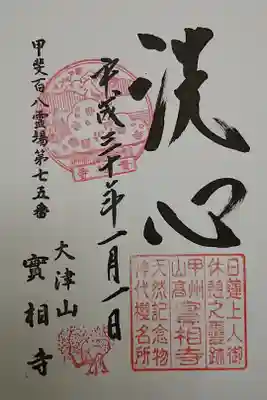 洗心
平成三十年一月一日
甲斐百八霊場第七五番
大津山
實相寺
日蓮上人御
休憩之靈跡
甲州實相寺
山高
天然記念物
神代櫻名所